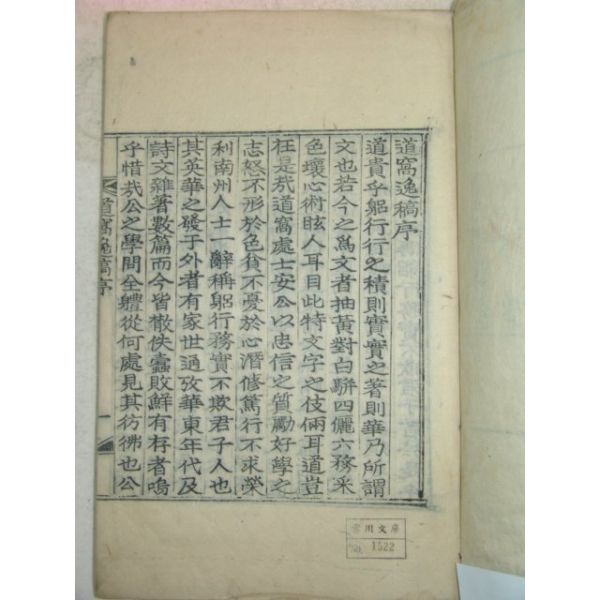 道窩逸稿序
道貴乎躬行行之積則實實之著則華乃所謂
文也若今之爲文者抽黃對白騈四儷六務采
色壞心術眩人耳目此特文字之伎倆耳道豈
在是哉道窩處士安公以忠信之質勵好學之
志怒不形於色貧不憂於心潛修篤行不求榮
利南州人士一辭稱躬行務實不欺君子人也
其英華之發于外者有家世通攷華東年代及
詩文雜著數篇而今皆散佚蠹敗鮮有存者嗚
乎惜哉公之學問全體從何處見其彷彿也公
道窩逸稿序
一
川文庫
No. 1522